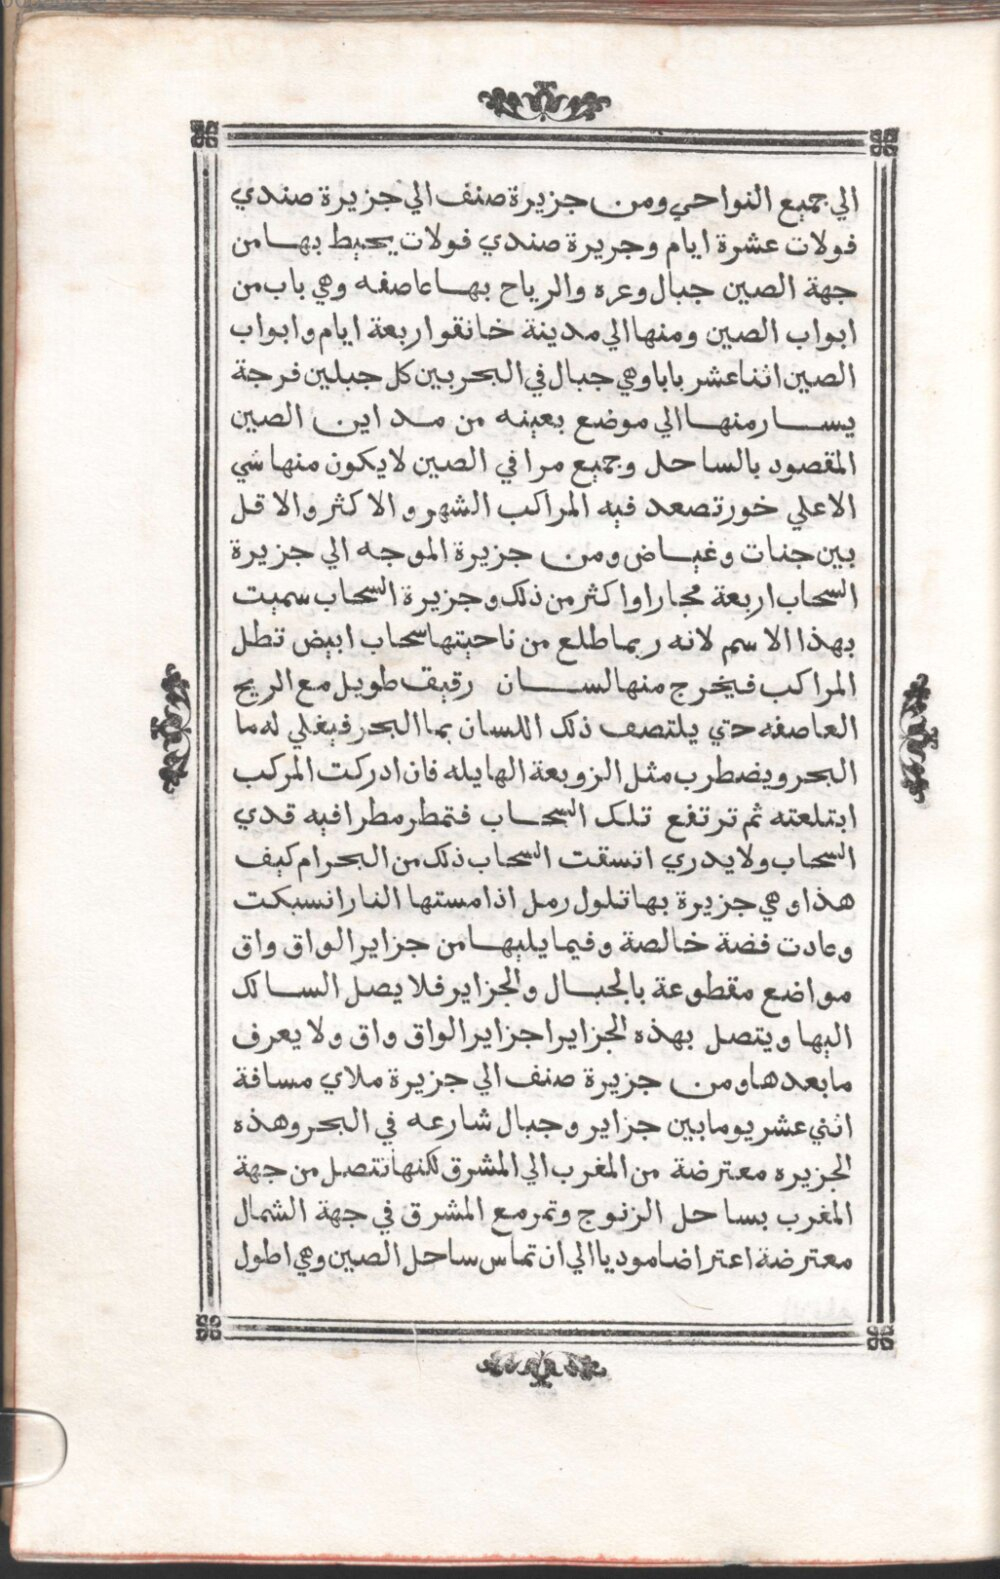 الي جميع النواحي ومن جزيرة صنف الي جزيرة صندي
فولات عشرة ايام وجريرة صندي فولات يحيط بها من
جهة الصين جبال وعره والرياح بها عاصفه وهي باب من
ابواب الصين ومنها الي مدينة خانقو اربعة ايام وابواب
الصين اثنا عشر بابا وهي جبال في البحر بين كل جبلين فرجة
يسار منها الي موضع بعينه من مداين الصين
المقصود بالساحل وجميع مرافي الصين لا يكون منها شي
الا علي خور تصعد فيه المراكب الشهر والاكثر والاقل
بين جنات وغياض ومن جزيرة الموجه الي جزيرة
السحاب اربعة مجار او اكثر من ذلك وجزيرة السحاب سميت
بهذا الاسم لانه ربما طلع من ناحيتها سحاب ابيض تطل
المراكب فيخرج منها لسان رقيق طويل مع الريح
العاصفه حتي يلتصف ذلك اللسان بما البحر فيغلي له ما
البحر ويضطرب مثل الزوبعة الهايله فان ادركت المركب
ابتلعته ثم ترتفع تلك السحاب فتمطر مطرا فيه قدي
السحاب ولا يدري اتسقت السحاب ذلك من البحر ام كيف
هذا وهي جزيرة بها تلول رمل اذا مستها النار انسبكت
وعادت فضة خالصة وفيما يليها من جزاير الواق واق
مواضع مقطوعة بالجبال والجزاير فلا يصل السالك
اليها ويتصل بهذه الجزاير اجزاير الواق واق ولا يعرف
ما بعدها ومن جزيرة صنف الي جزيرة ملاي مسافة
اثني عشر يوما بين جزاير وجبال شارعه في البحر وهذه
الجزيره معترضة من المغرب الي المشرق لكنها تتصل من جهة
المغرب بساحل الزنوج وتمر مع المشرق في جهة الشمال
معترضة اعتراضا موديا الي ان تماس ساحل الصين وهي اطول